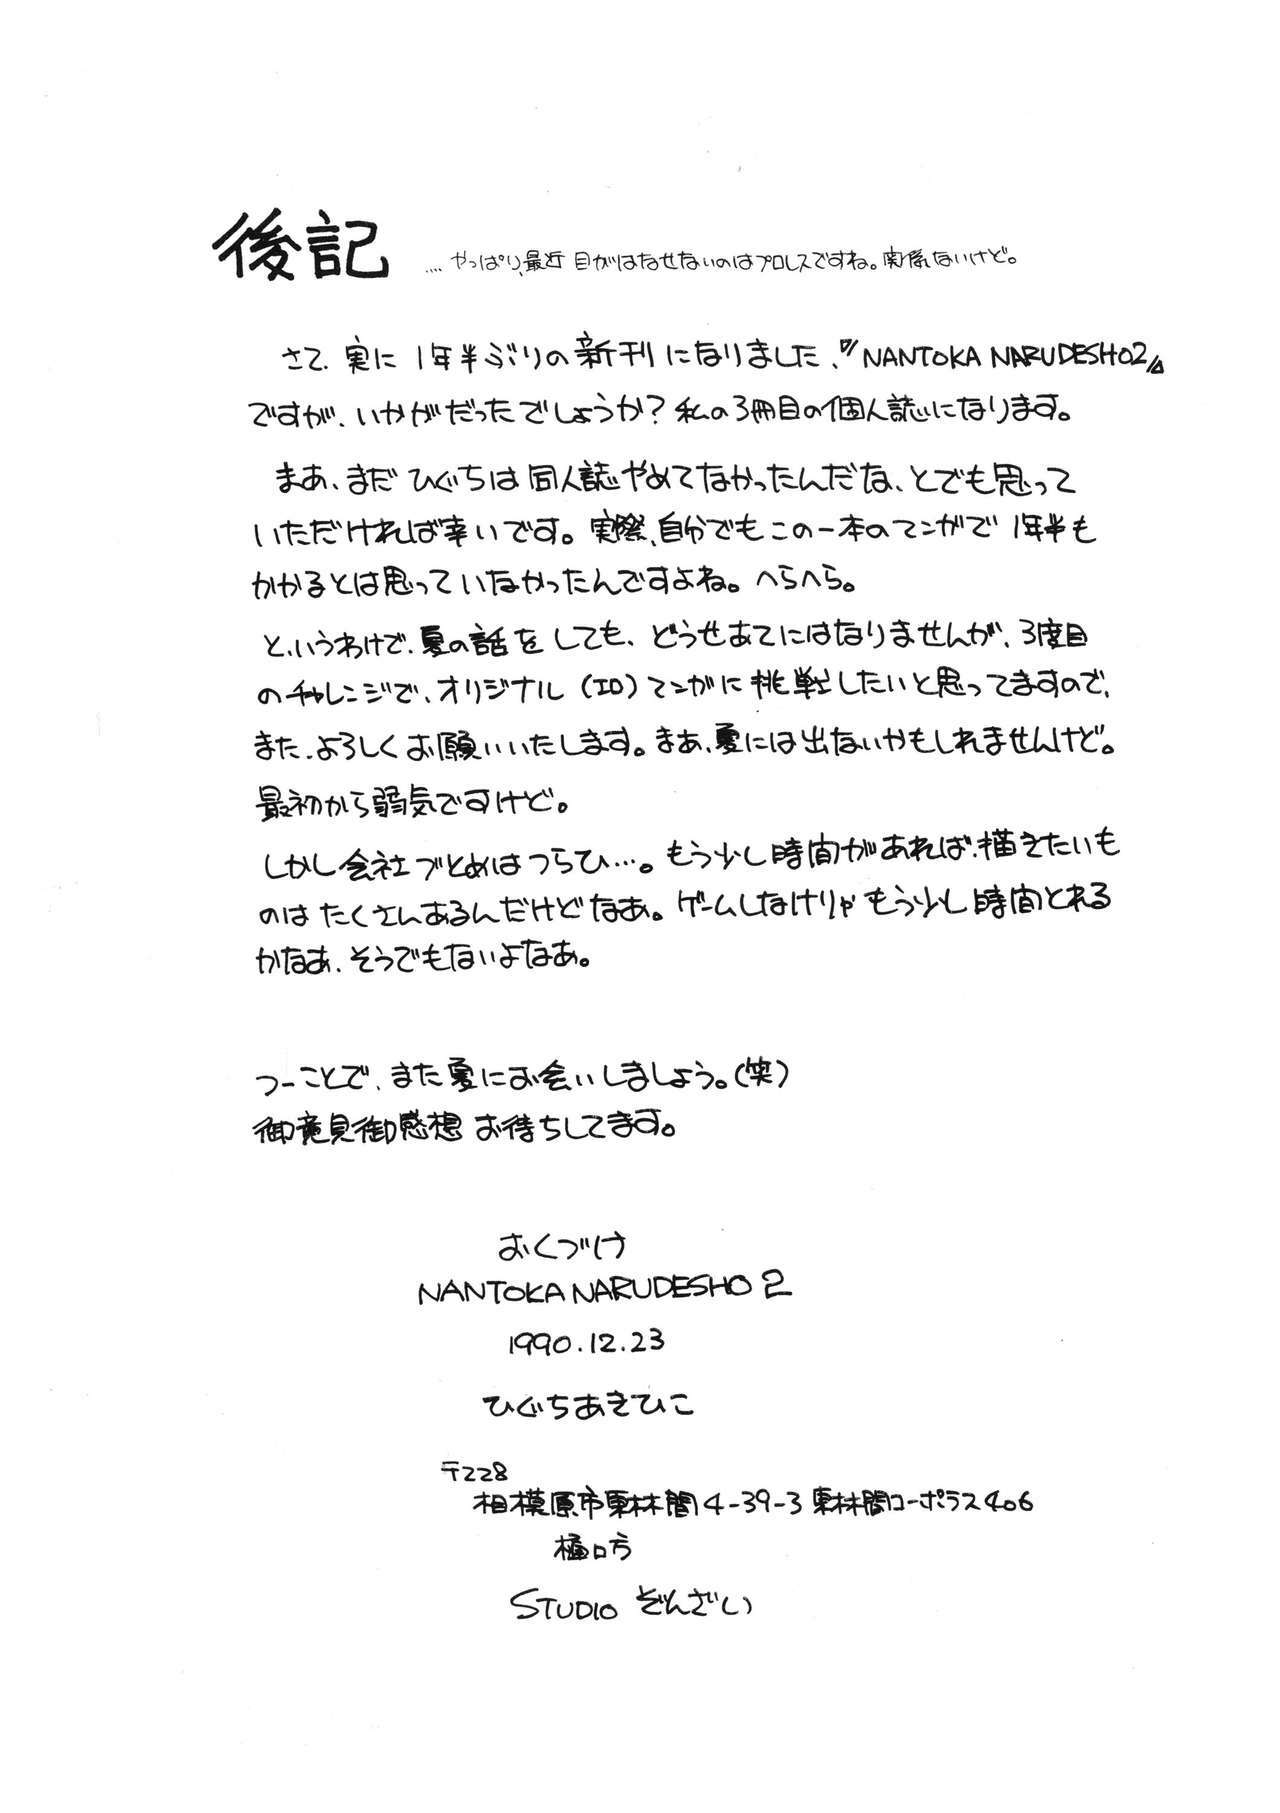 後記 ....やっぱり、最近目がはなせないのはプロレスですね。関係ないけど。
さて、実に1年半ぶりの新刊になりました、『NANTOKA NARUDESHO2』
ですが、いかがだったでしょうか?私の3冊目の個人誌になります。
まあ、まだひぐちは同人誌やめてなかったんだな、とでも思って
いただければ幸いです。実際、自分でもこの一本のマンガで1年半も
かかるとは思っていなかったんですよね。へらへら。
と、いうわけで、夏の話をしても、どうせあてにはなりませんが、3度目
のチャレンジで、オリジナル(エロ)マンガに挑戦したいと思ってますので、
また、よろしくお願いいたします。まあ、夏には出ないかもしれませんけど。
最初から弱気ですけど。
しかし会社づとめはつらひ…。もう少し時間があれば、描きたいも
のはたくさんあるんだけどなあ。ゲームしなけりゃもう少し時間とれる
かなあ、そうでもないよなあ。
つーことで、また夏にお会いしましょう。(笑)
御意見御感想お待ちしてます。
おくづけ
NANTOKA NARUDESHO 2
1990.12.23
ひぐちあきひこ
〒228
相模原市東林間4-39-3 東林間コーポラス406
樋口方
STUDIO ぞんざい